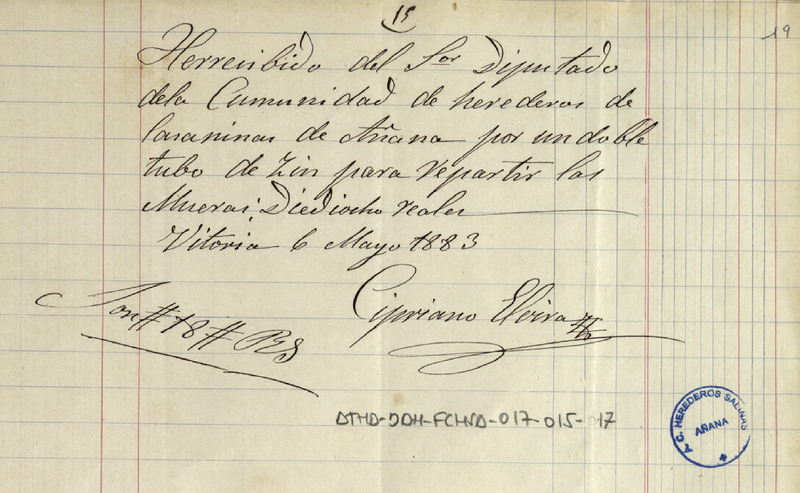 15
19
Herrecibido del Sor Diputado
dela Comunidad de herederos de
lasaninas de Añana por un doble
tubo de Zin para repartir las
Mueras, Diediocho reales
Vitoria 6 Mayo 1883
Cipriano Elvira
Son # 18 # RS
ATHA-DAH-FCHSA-017-015-017
A. C. HEREDEROS SALINAS
AÑANA